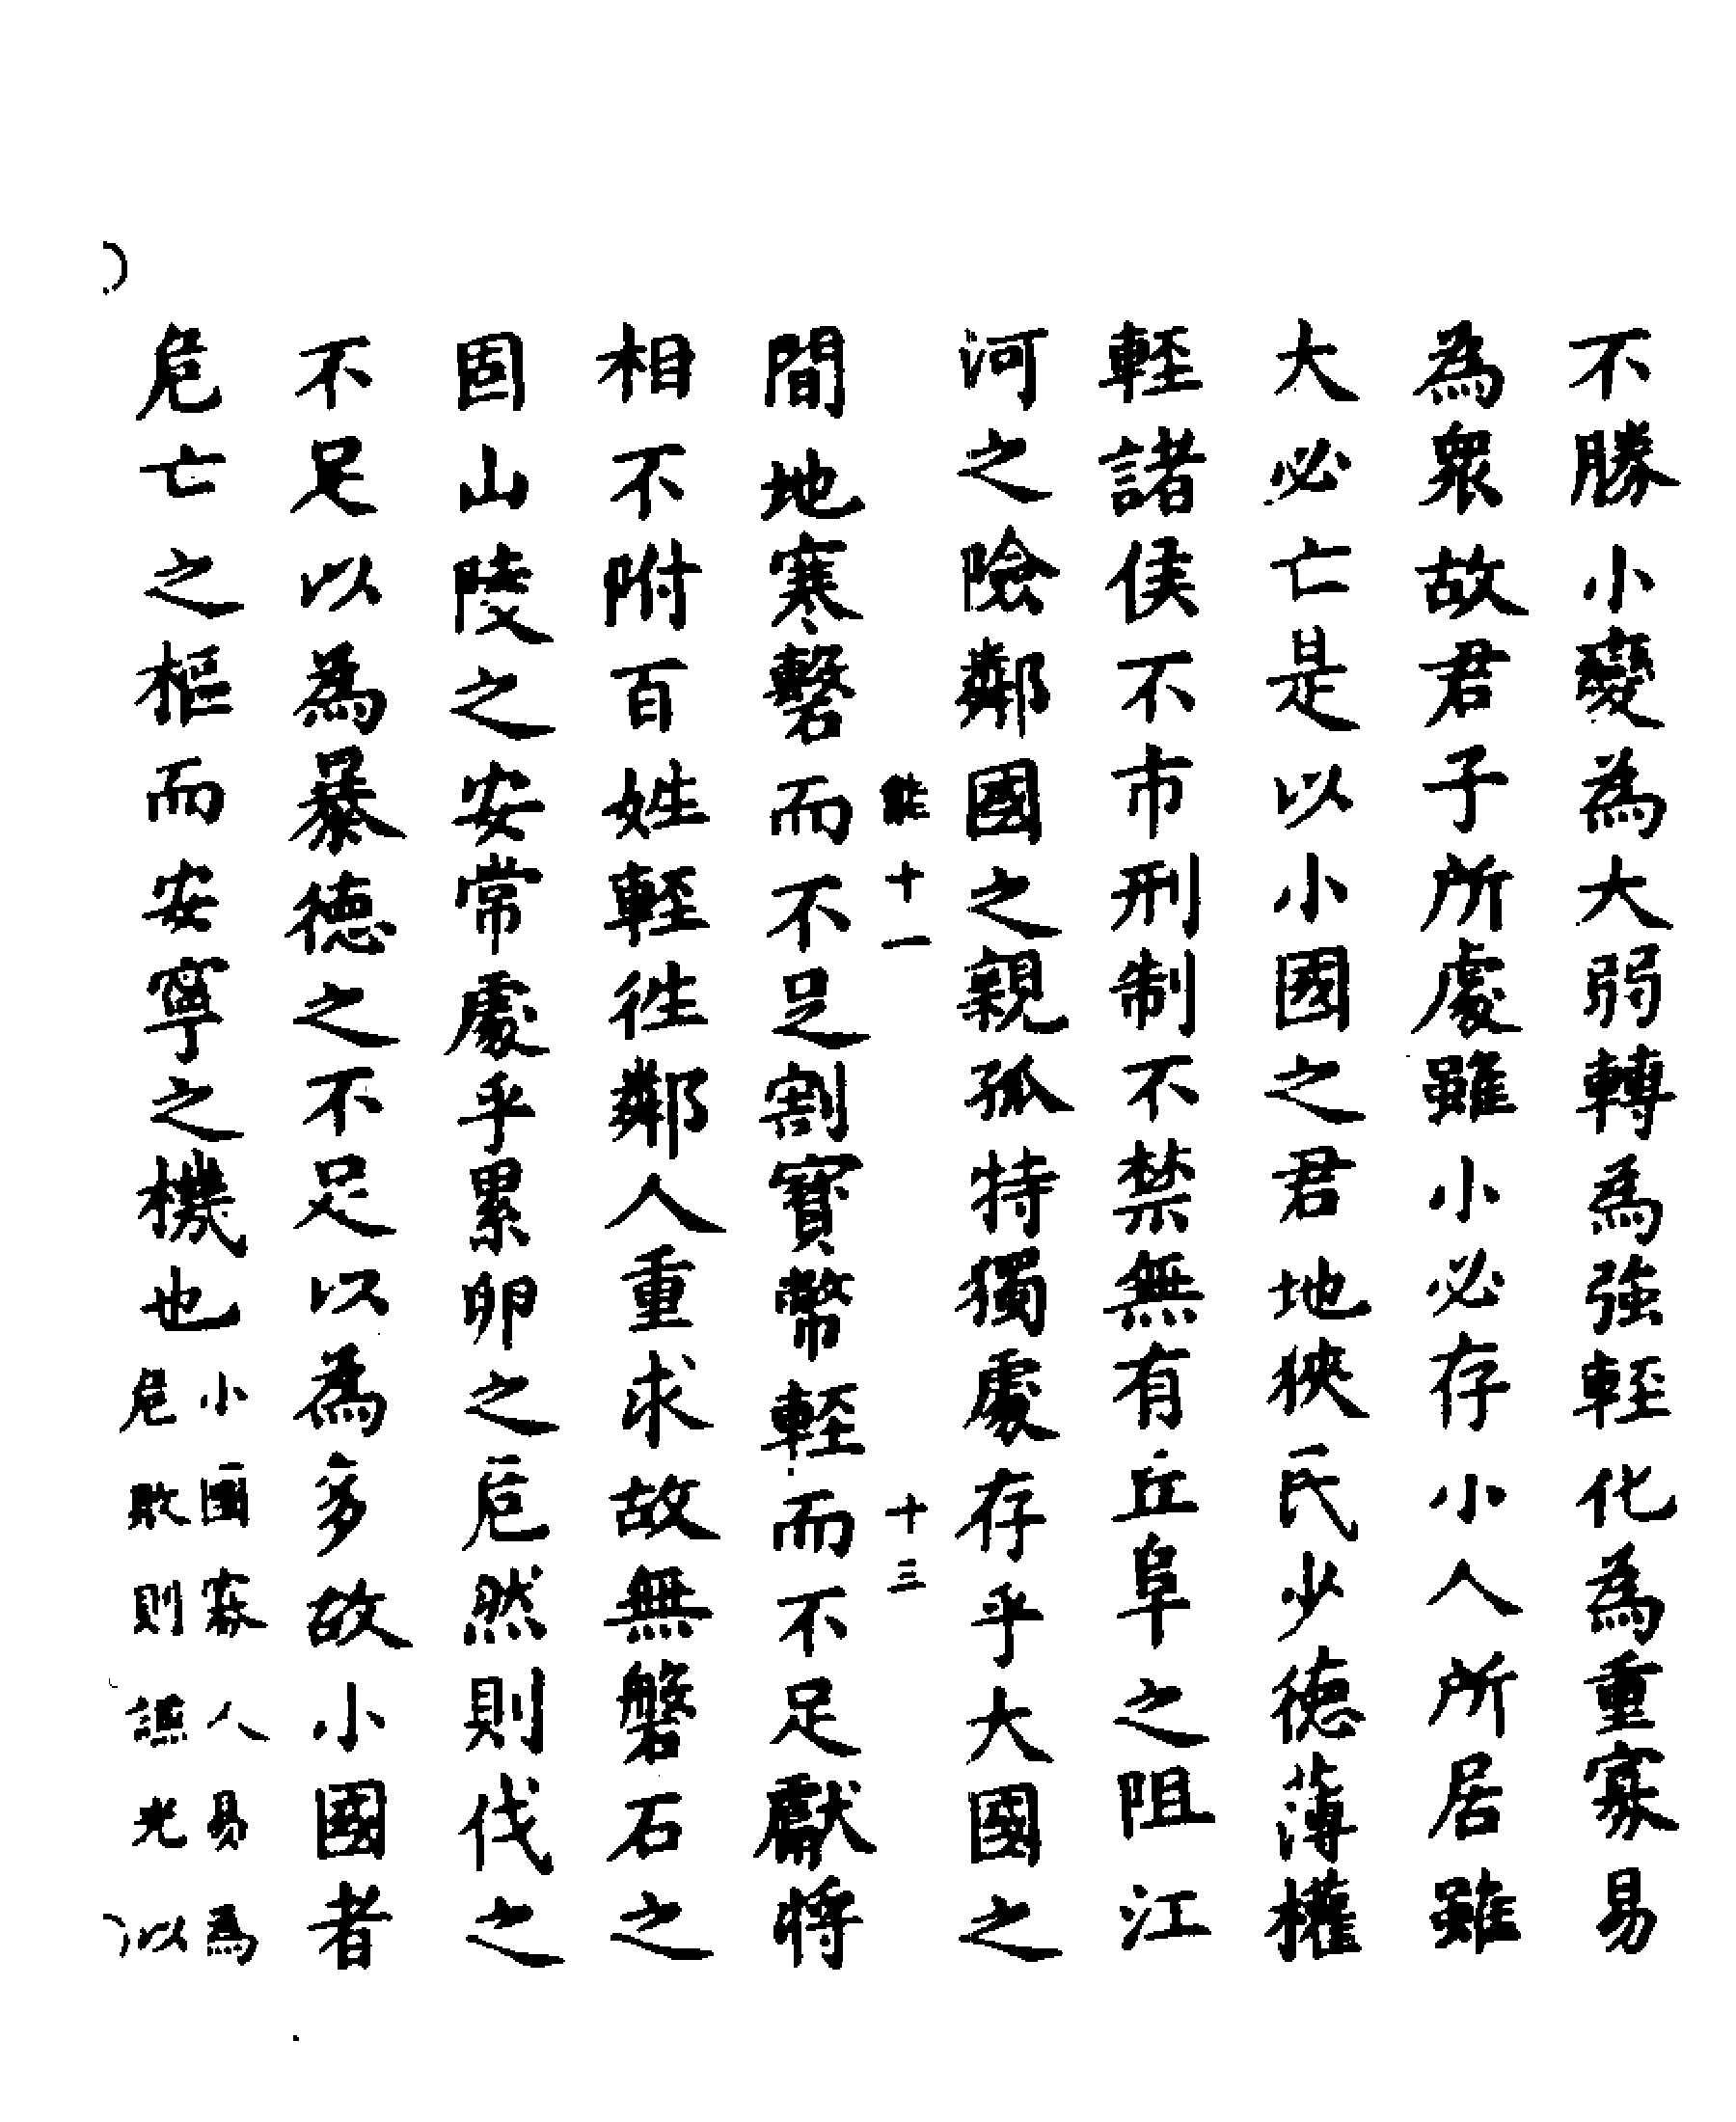 不勝小變為大弱轉為強輕化為重寡易
為衆故君子所處雖小必存小人所居雖
大必亡是以小國之君地狹民少德薄權
輕諸侯不市刑制不禁無有丘阜之阻江
河之險鄰國之親孤特獨處存乎大國之
能十一 十三
間地寒磬而不足割寶幣輕而不足獻將
相不附百姓輕徃鄰人重求故無磐石之
固山陵之安常處乎累卵之危然則伐之
不足以為暴德之不足以為多故小國者
危亡之樞而安寧之機也
小國寡人易為
危敗則謙光以